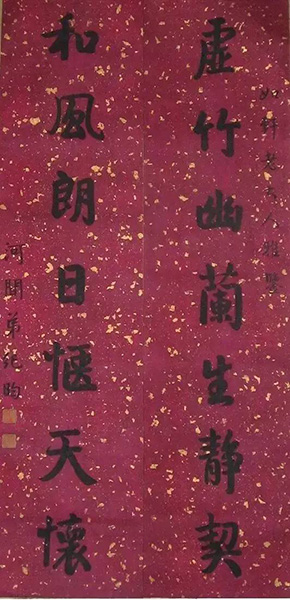 如 人雅鑒
虛竹幽蘭生靜契
和風朗日愜天懷
河間弟紀昀